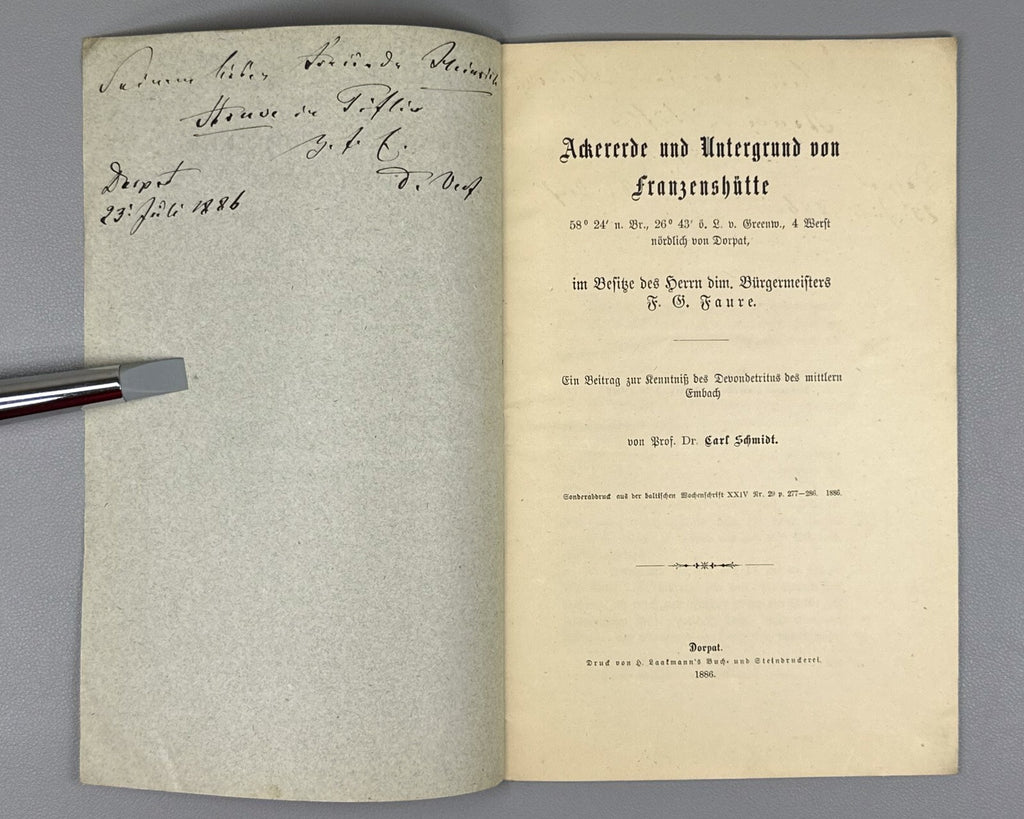 Seinem lieben Freunde Heinrich
Struve in Tiflis
z. f. E.
d. Verf
Dorpat
23. Juli 1886
Ackererde und Untergrund von
Franzenshütte
58° 24′ n. Br., 26° 43′ ö. L. v. Greenw., 4 Werst
nördlich von Dorpat,
im Besitze des Herrn dim. Bürgermeisters
F. G. Faure.
Ein Beitrag zur Kenntniß des Devondetritus des mittlern
Embach
von Prof. Dr. Carl Schmidt.
Sonderabdruck aus der baltischen Wochenschrift XXIV Nr. 29 p. 277—286. 1886.
Dorpat.
Druck von H. Laakmann's Buch- und Steindruckerei.
1886.